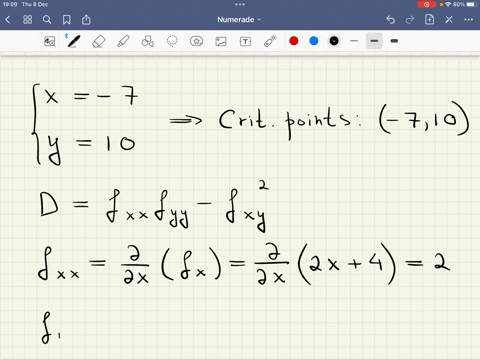 19:09 Thu 8 Dec
80%
Numerade
x = -7
y = 10
⟹ Crit. points: (-7, 10)
D = f_xx f_yy - f_xy^2
f_xx = ∂/∂x (f_x) = ∂/∂x (2x + 4) = 2
f